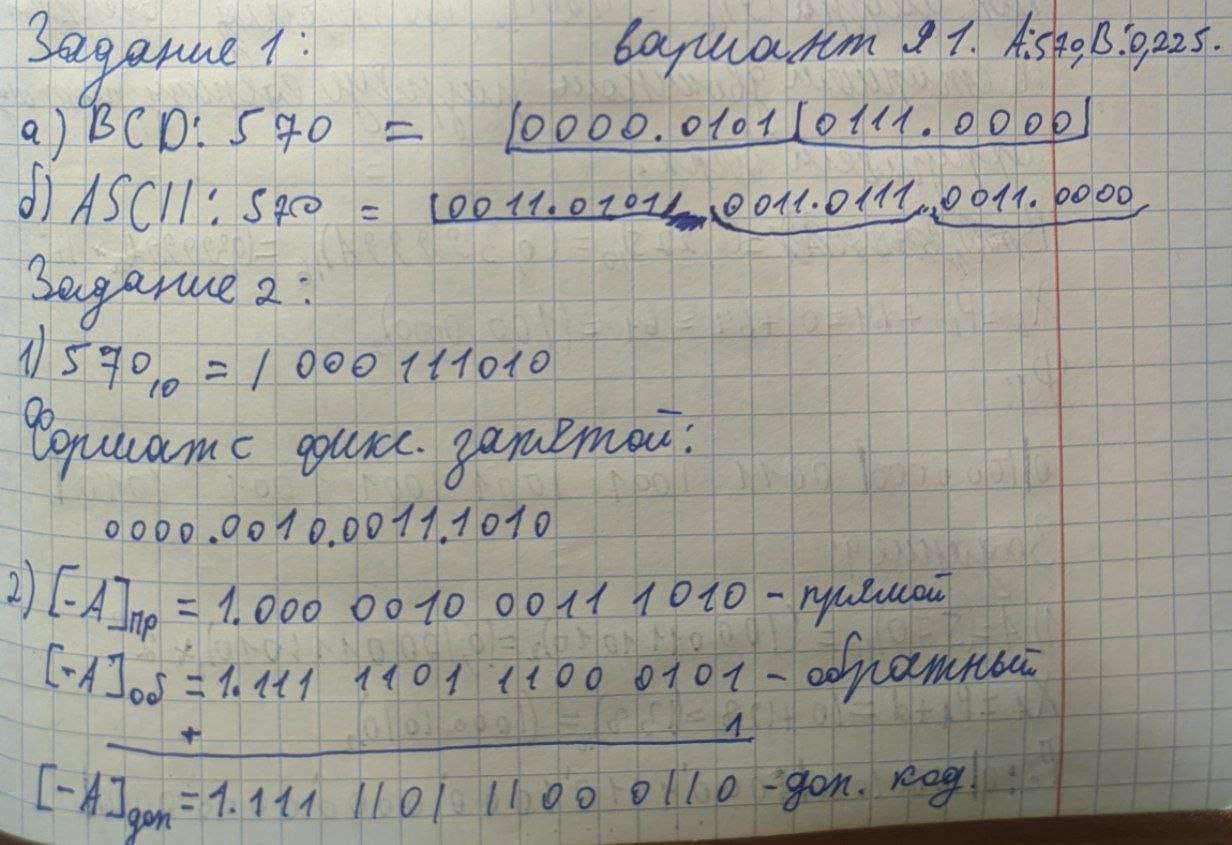 Задание 1: вариант № 1. A:570, B:0,225.
а) BCD: 570 = 0000.0101 0111.0000
б) ASCII: 570 = 0011.0101 0011.0111 0011.0000
Задание 2:
1) 570₁₀ = 1 000 111010
Формат с фикс. запятой:
0000.0010.0011.1010
2) [-A]пр = 1.000 0010 0011 1010 - прямой
[-A]об = 1.111 1101 1100 0101 - обратный
+ 1
[-A]доп = 1.111 1101 1100 0110 - доп. код.